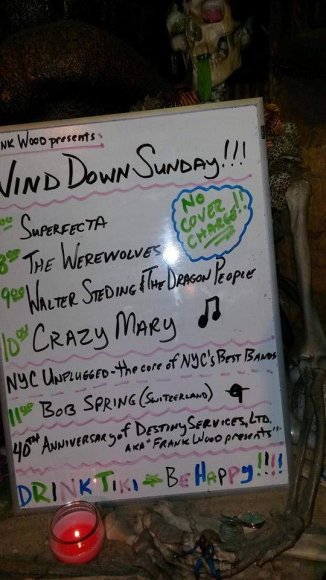 NK WOOD presents:
WIND DOWN SUNDAY!!!
NO
COVER
CHARGE!!
⁰⁰ SUPERFECTA
8⁰⁰ THE WEREWOLVES
9⁰⁰ WALTER STEDING & THE DRAGON PEOPLE
10⁰⁰ CRAZY MARY
NYC UNPLUGGED-the core of NYC's BEST BANDS
11⁰⁰ BOB SPRING (SWITZERLAND)
40TH ANNIVERSARY of DESTINY SERVICES, LTD.
AKA "FRANK WOOD presents"
DRINK TIKI BE HAPPY!!!!